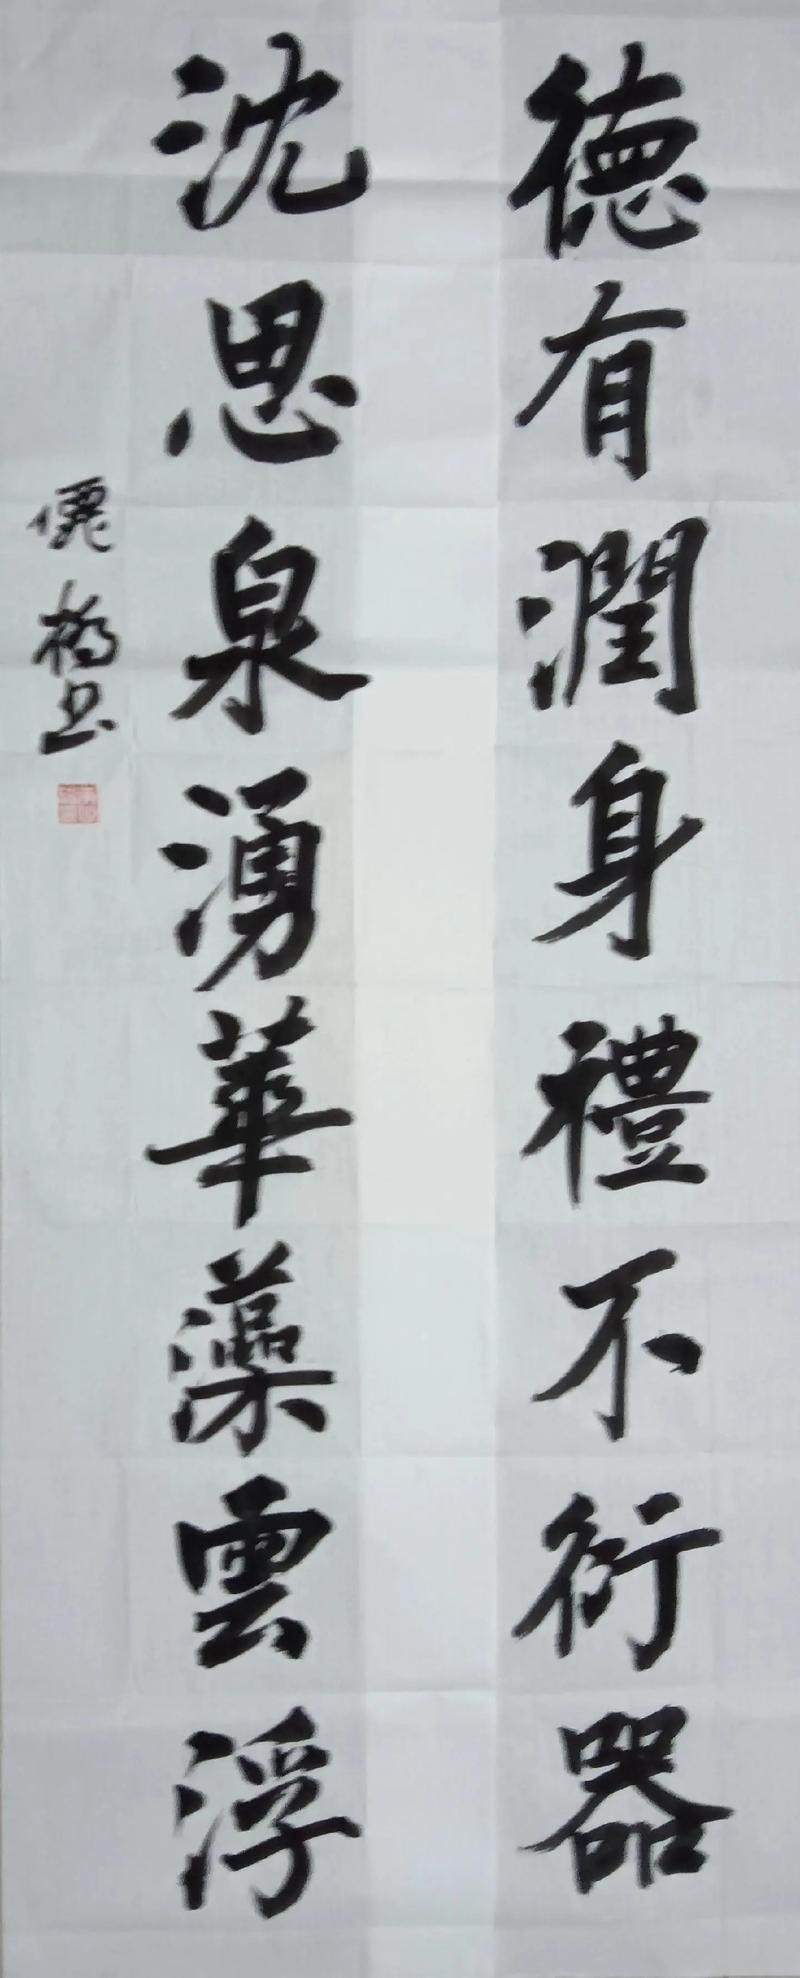 德有潤身禮不衍器
沈思泉湧華藻雲浮
儷橋書